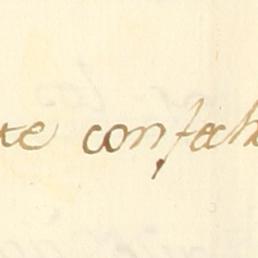 te confect